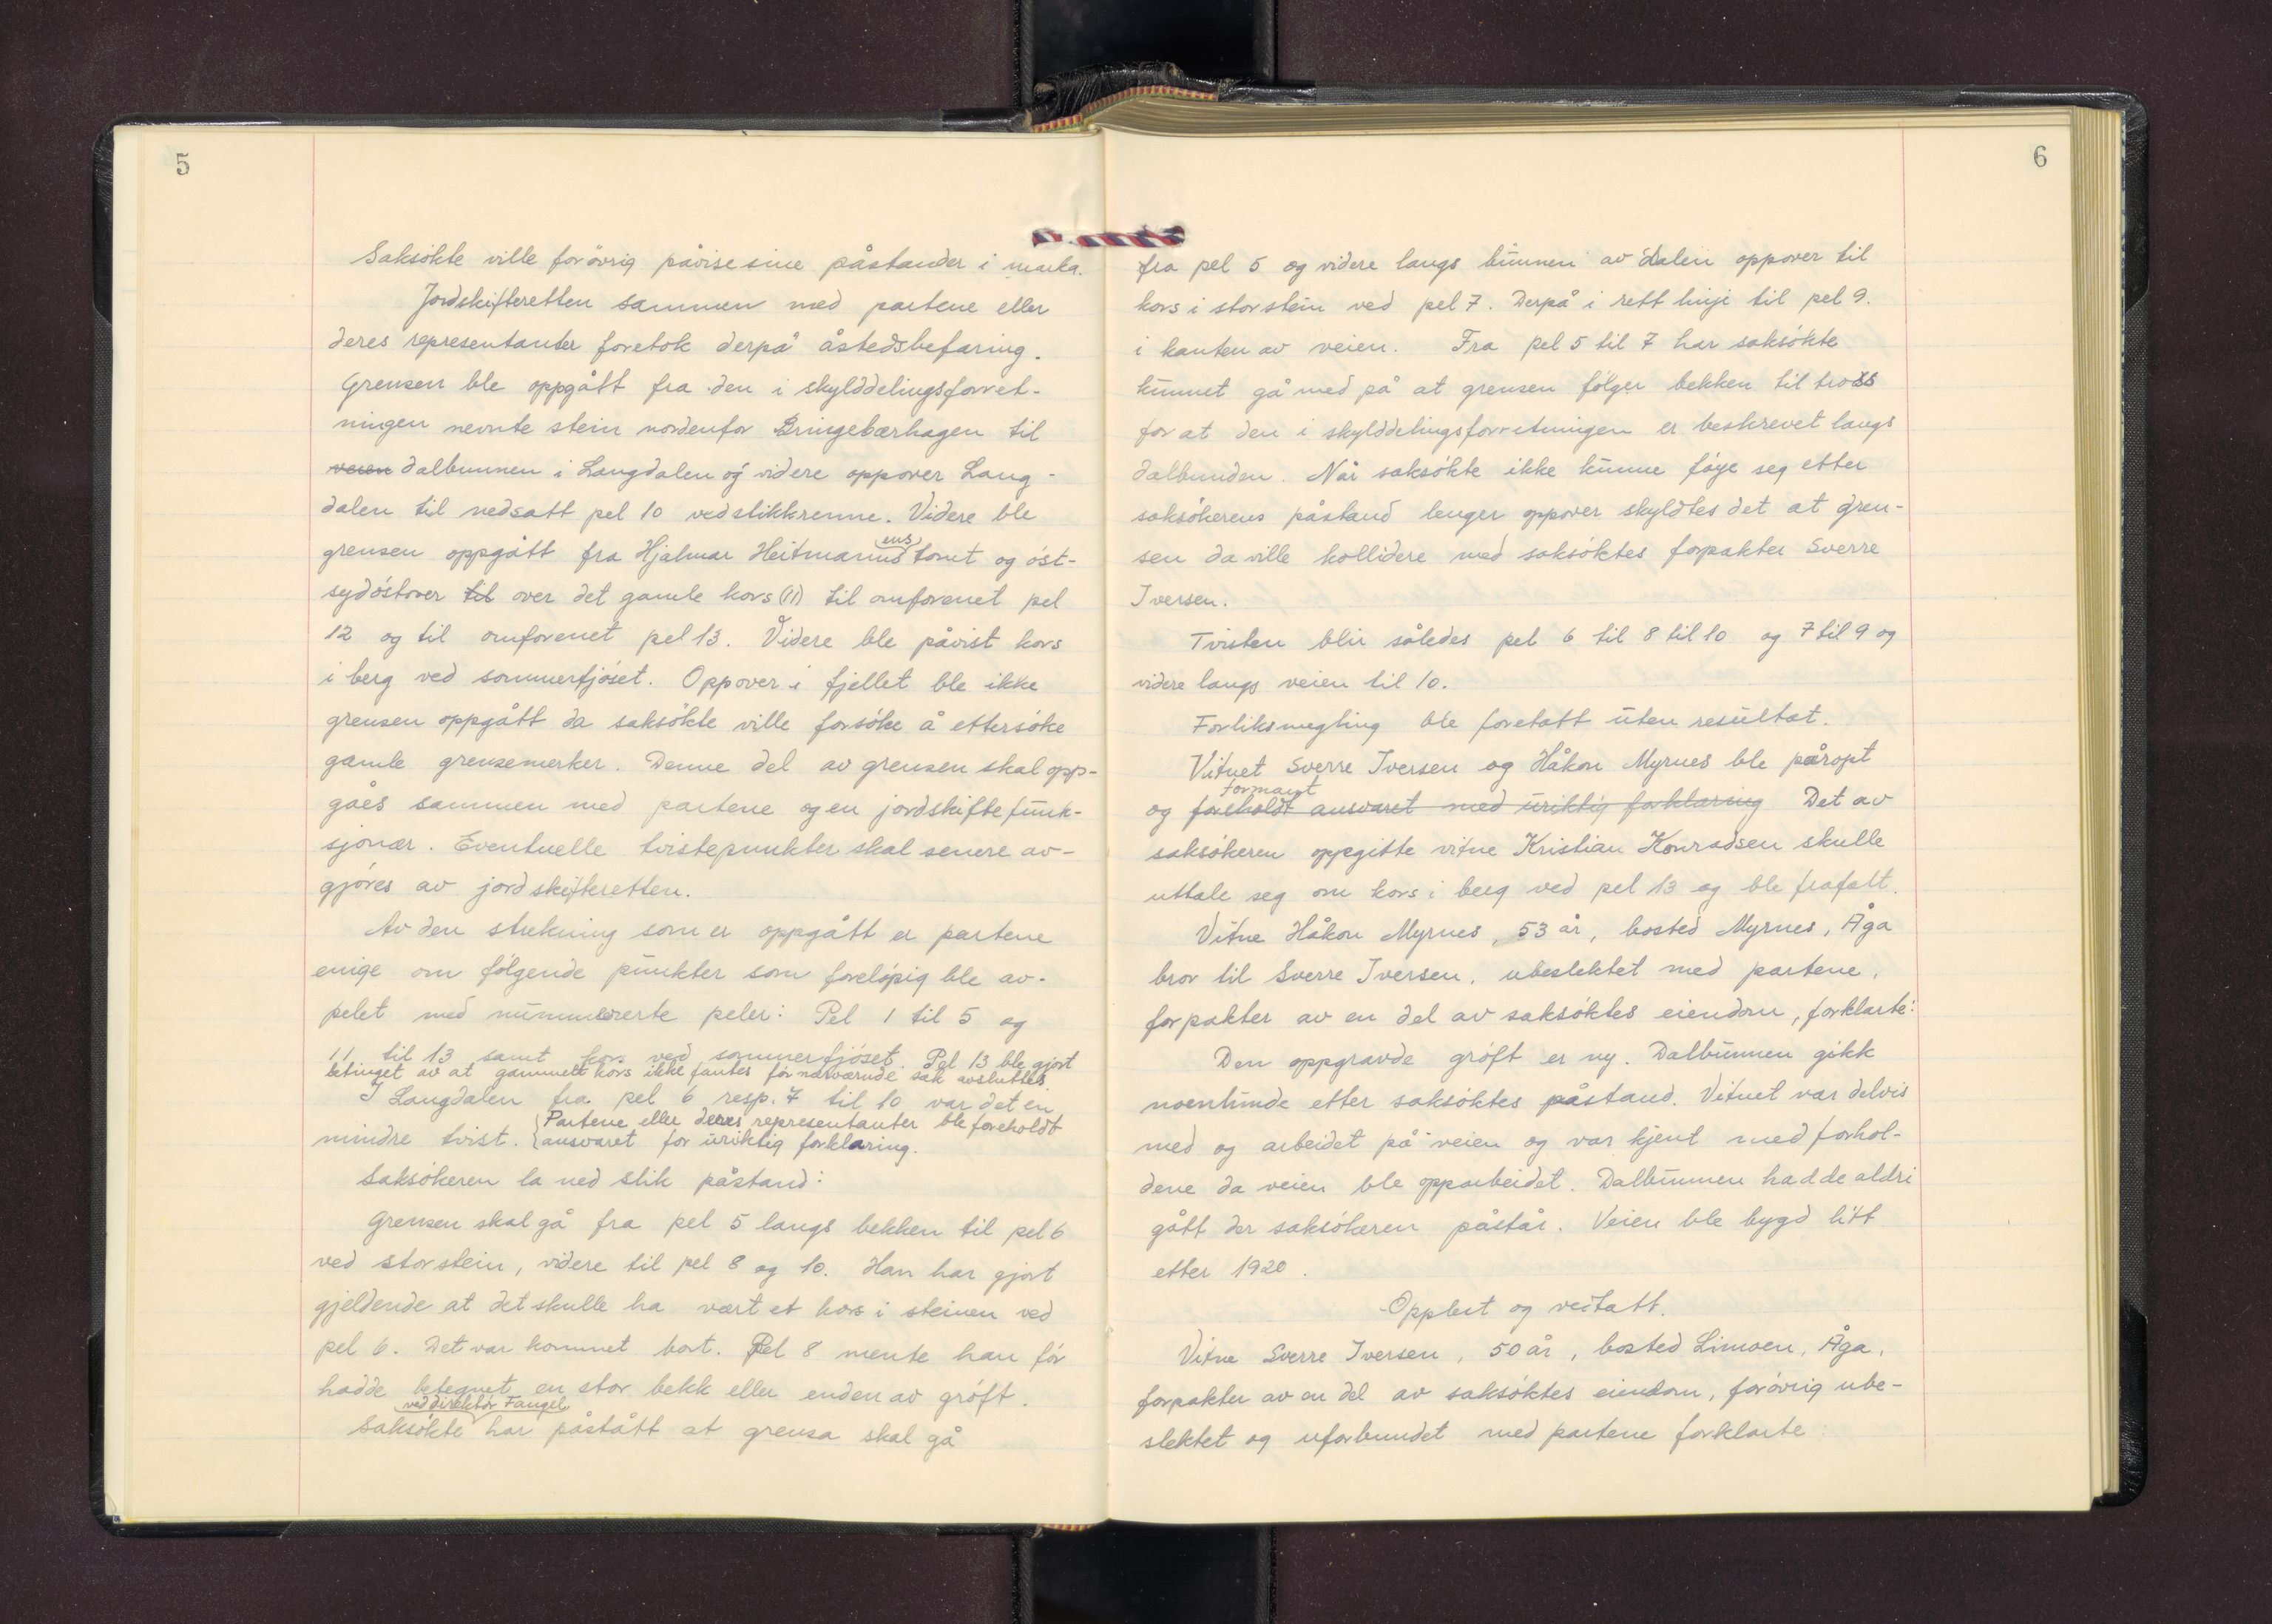 5
Saksökte ville forövrig påvise sine påstander i marka.
Jordskifteretten sammen med partene eller
deres representanter foretok derpå åstedsbefaring.
Grensen ble oppgått fra den i skylddelingsforret-
ningen nevnte stein nordenfor Bringebærhagen til
veien dalbunnen i Langdalen og videre oppover Lang-
dalen til nedsatt pel 10 ved stikkrenne. Videre ble
ens
grensen oppgått fra Hjalmar Heitmanns tomt og öst-
sydöstover til over det gamle kors (11) til omforenet pel
12 og til omforenet pel 13. Videre ble påvist kors
i berg ved sommerfjöset. Oppover i fjellet ble ikke
grensen oppgått da saksökte ville forsöke å ettersöke
gamle grensemerker. Denne del av grensen skal opp-
gåes sammen med partene og en jordskiftefunk-
sjonær. Eventuelle tvistepunkter skal senere av-
gjöres av jordskifteretten.
Av den strekning som er oppgått er partene
enige om fölgende punkter som forelöpig ble av-
pelet med nummererte peler: Pel 1 til 5 og
11 til 13 samt kors ved sommerfjöset. Pel 13 ble gjort
betinget av at gammelt kors ikke fantes för nærværende sak avsluttes.
I Langdalen fra pel 6 resp. 7 til 10 var det en
Partene eller deres representanter ble foreholdt
mindre tvist. ansvaret for uriktig forklaring.
Saksökeren la ned slik påstand:
Grensen skal gå fra pel 5 langs bekken til pel 6
ved storstein, videre til pel 8 og 10. Han har gjort
gjeldende at det skulle ha vært et kors i steinen ved
pel 6. Det var kommet bort. Pel 8 mente han för
hadde betegnet en stor bekk eller enden av gröft.
ved direktör Fangel
Saksökte har påstått at grensa skal gå
6
fra pel 5 og videre langs bunnen av dalen oppover til
kors i storstein ved pel 7. Derpå i rett linje til pel 9.
i kanten av veien. Fra pel 5 til 7 har saksökte
kunnet gå med på at grensen fölger bekken til tross
for at den i skylddelingsforretningen er beskrevet langs
dalbunden. Når saksökte ikke kunne föye seg etter
saksökerens påstand lenger oppover skyldtes det at gren-
sen da ville kollidere med saksöktes forpakter Sverre
Iversen.
Tvisten blir således pel 6 til 8 til 10 og 7 til 9 og
videre langs veien til 10.
Forliksmegling ble foretatt uten resultat.
Vitnet Sverre Iversen og Håkon Myrnes ble påropt
formant
og foreholdt ansvaret med uriktig forklaring Det av
saksökeren oppgitte vitne Kristian Konradsen skulle
uttale seg om kors i berg ved pel 13 og ble frafalt.
Vitne Håkon Myrnes, 53 år, bosted Myrnes, Åga
bror til Sverre Iversen, ubeslektet med partene,
forpakter av en del av saksöktes eiendom, forklarte:
Den oppgravde gröft er ny. Dalbunnen gikk
noenlunde etter saksöktes påstand. Vitnet var delvis
med og arbeidet på veien og var kjent med forhol-
dene da veien ble opparbeidet. Dalbunnen hadde aldri
gått der saksökeren påstår. Veien ble bygd litt
etter 1920.
Opplest og vedtatt.
Vitne Sverre Iversen, 50 år, bosted Limoen, Åga,
forpakter av en del av saksöktes eiendom, forövrig ube-
slektet og uforbundet med partene forklarte: